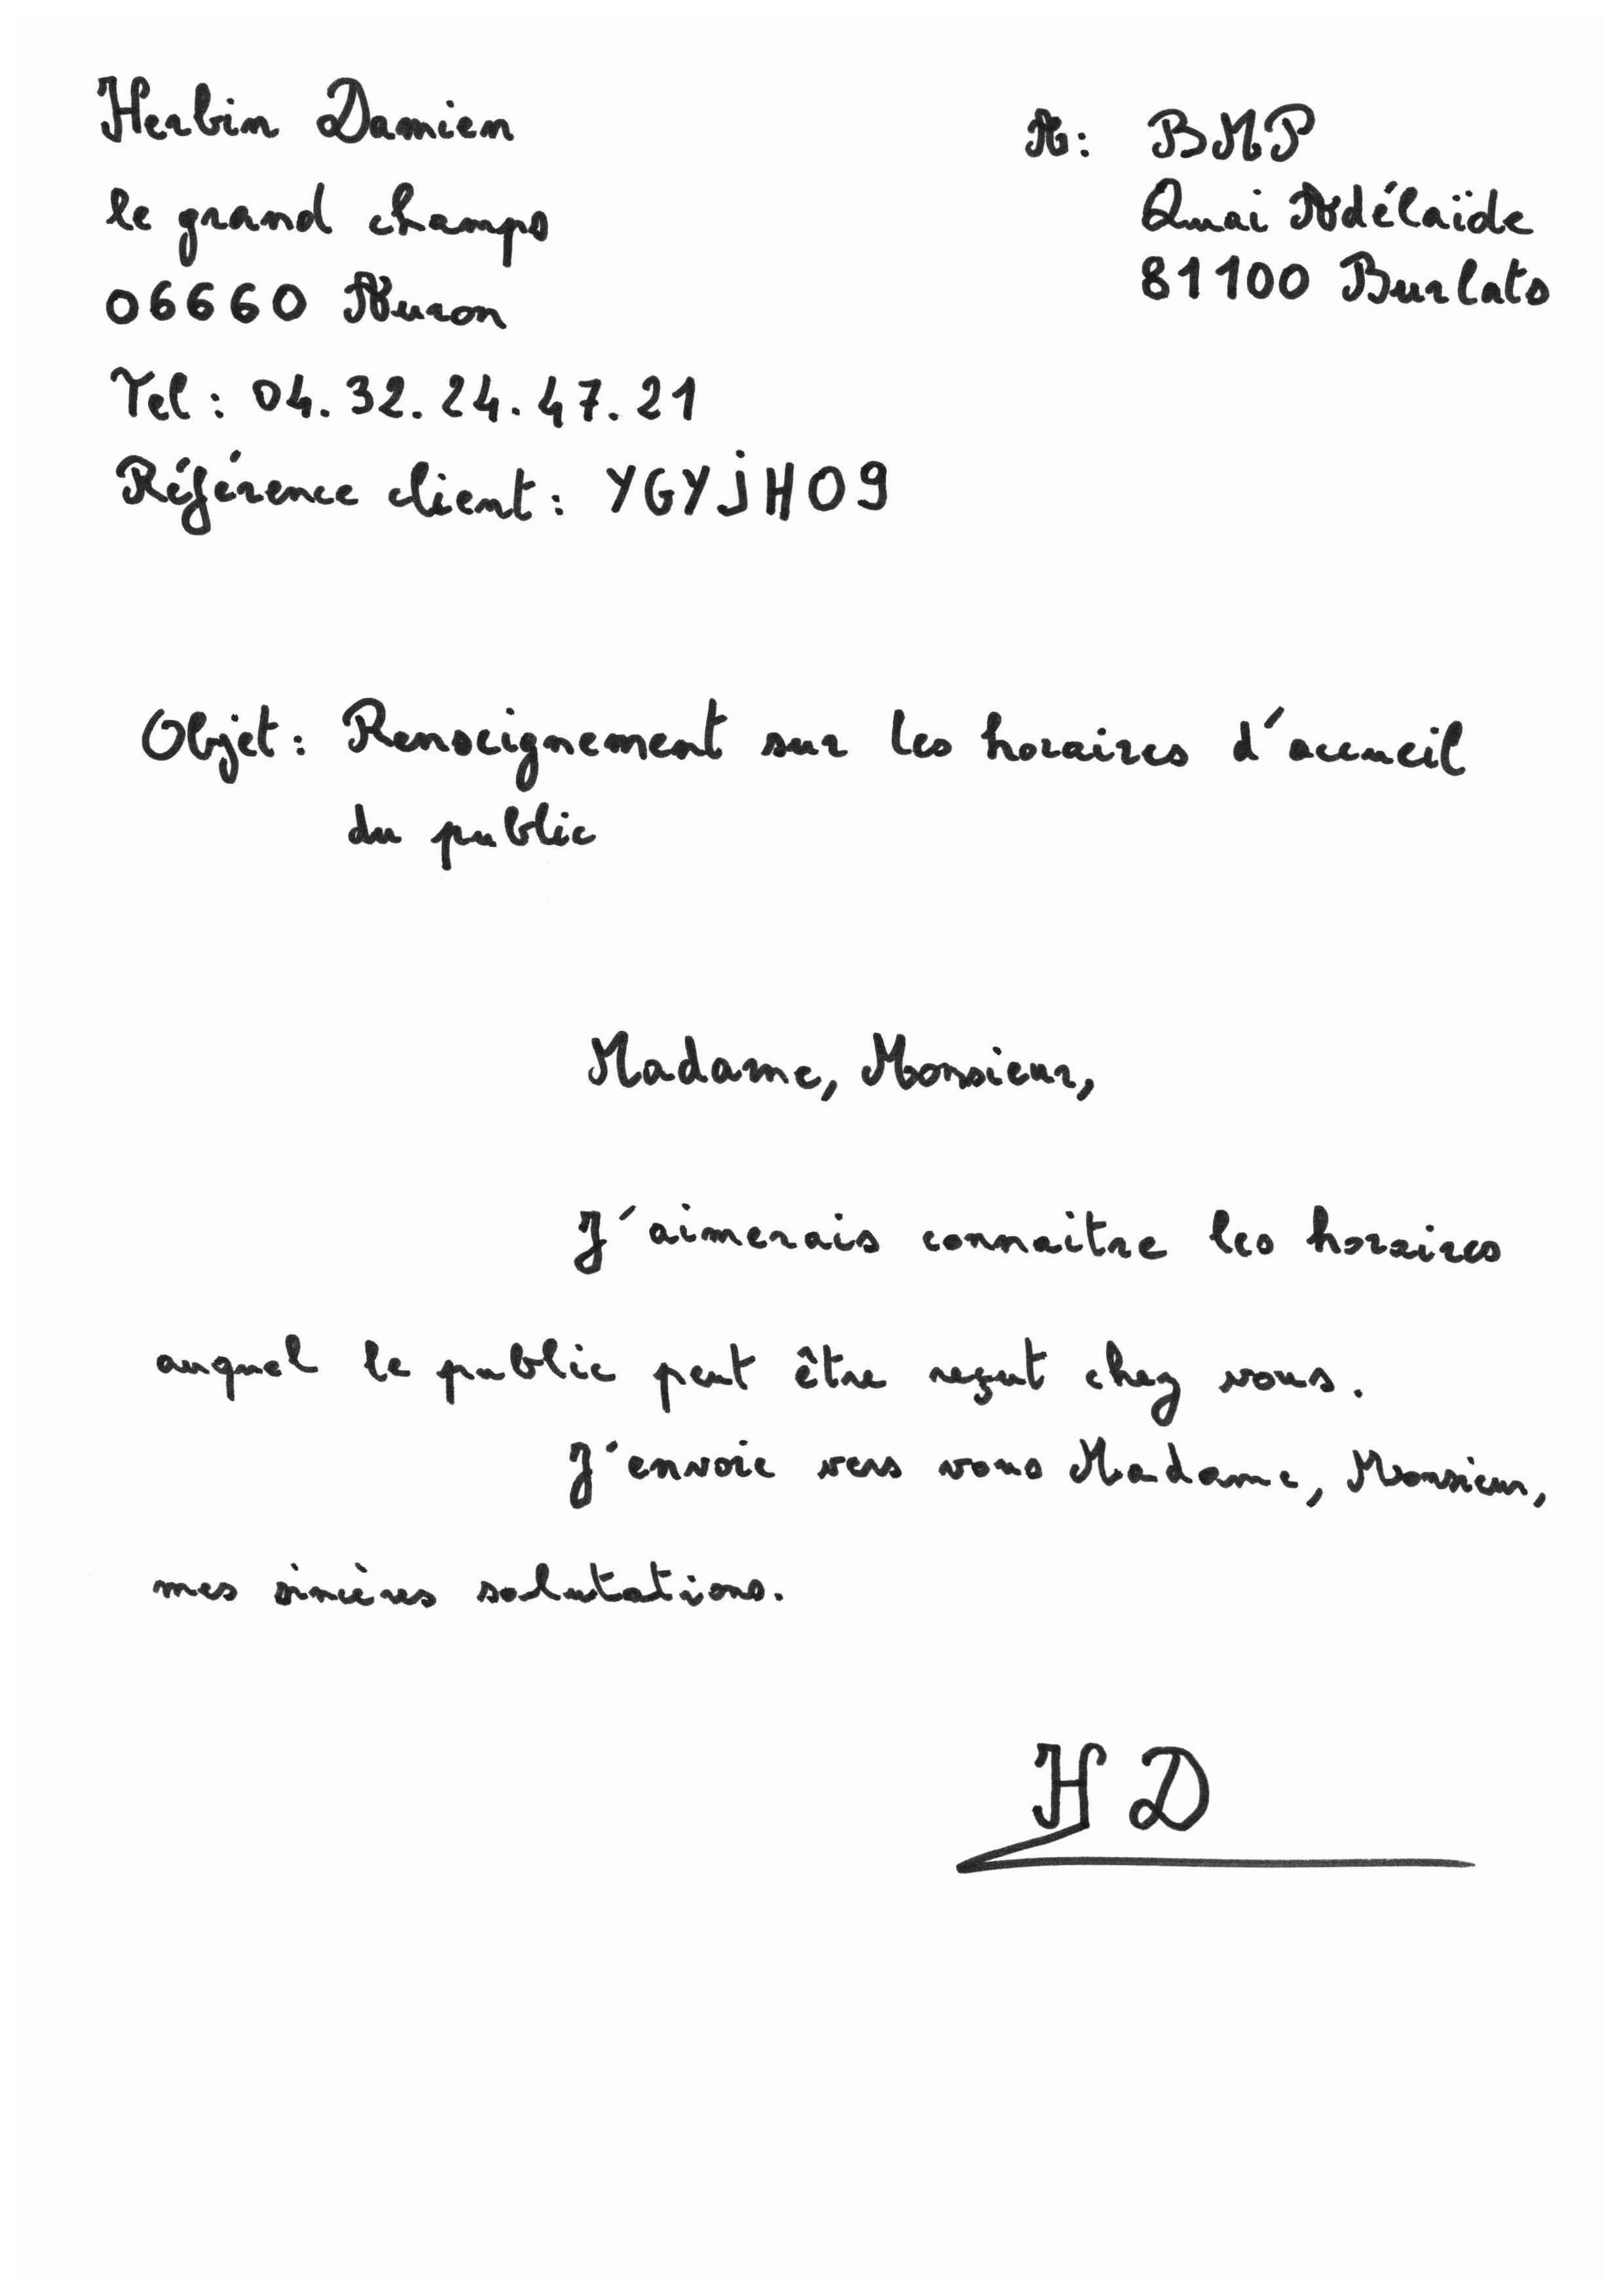 Herbin Damien
le grand champs
06660 Auron
Tel : 04.32.24.47.21
Référence client : YGYJH09
A : BMP
Quai Adélaïde
81100 Burlats
Objet : Renseignement sur les horaires d'accueil
du public
Madame, Monsieur,
J'aimerais connaitre les horaires
auquel le public peut être reçut chez vous.
J'envoie vers vous Madame, Monsieur,
mes sincères salutations.
H D